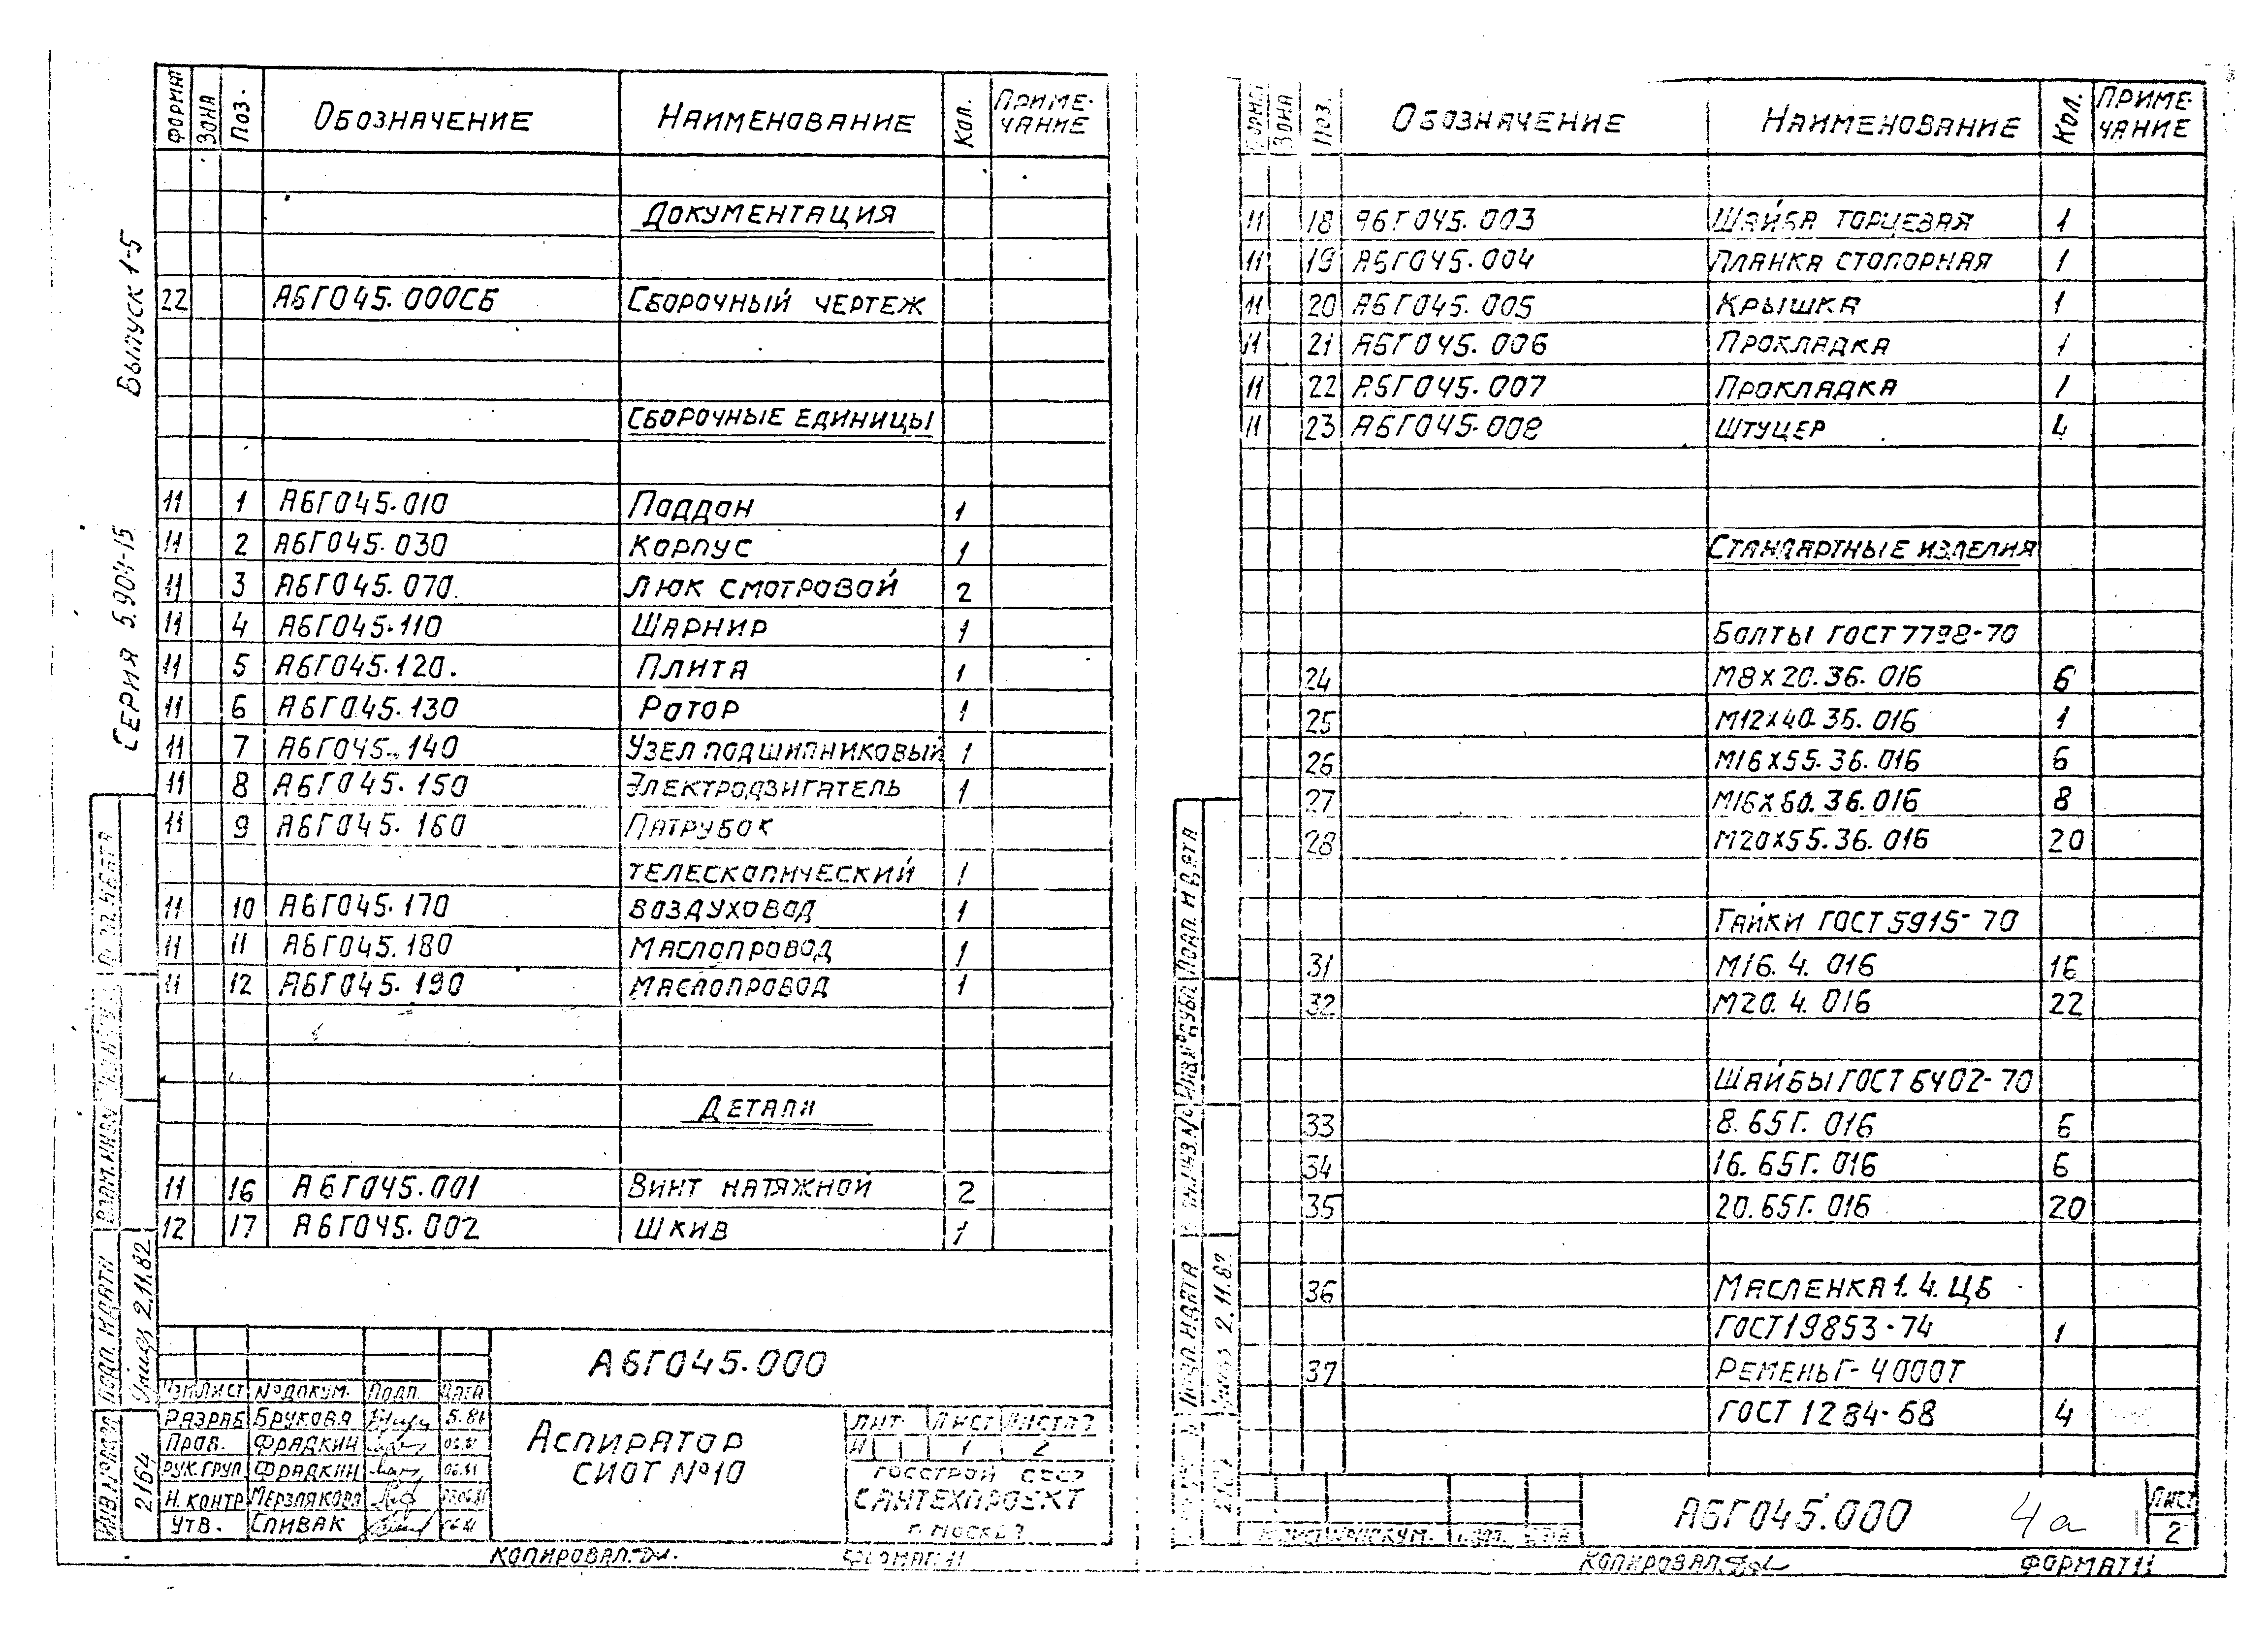 Серия 5.904-15 Выпуск 1-5
Формат Зона Поз. Обозначение Наименование Кол. Примечание
Документация
22 А6Г045.000СБ Сборочный чертеж
Сборочные единицы
11 1 А6Г045.010 Поддон 1
11 2 А6Г045.030 Корпус 1
11 3 А6Г045.070. Люк смотровой 2
11 4 А6Г045.110 Шарнир 1
11 5 А6Г045.120. Плита 1
11 6 А6Г045.130 Ротор 1
11 7 А6Г045.140 Узел подшипниковый 1
11 8 А6Г045.150 Электродвигатель 1
11 9 А6Г045.160 Патрубок
телескопический 1
11 10 А6Г045.170 Воздуховод 1
11 11 А6Г045.180 Маслопровод 1
11 12 А6Г045.190 Маслопровод 1
Детали
11 16 А6Г045.001 Винт натяжной 2
12 17 А6Г045.002 Шкив 1
А6Г045.000
Изм Лист № докум. Подп. Дата
Разраб Брукова 5.81
Пров. Фрадкин
Рук. груп Фрадкин 06.81
Н. контр Мерзлякова
Утв. Спивак
Аспиратор
СИОТ №10
Лит. Лист Листов
И 1 2
Госстрой СССР
Сантехпроект
г. Москва
Инв. № подл 2164
Подп. и дата 2.11.82
Взам. инв. №
Копировал
Формат 11
Формат Зона Поз. Обозначение Наименование Кол. Примечание
11 18 А6Г045.003 Шайба торцевая 1
11 19 А6Г045.004 Планка стопорная 1
11 20 А6Г045.005 Крышка 1
11 21 А6Г045.006 Прокладка 1
11 22 А6Г045.007 Прокладка 1
11 23 А6Г045.008 Штуцер 4
Стандартные изделия
Болты ГОСТ 7798-70
24 М8х20.36.016 6
25 М12х40.36.016 1
26 М16х55.36.016 6
27 М16х60.36.016 8
28 М20х55.36.016 20
Гайки ГОСТ 5915-70
31 М16.4.016 16
32 М20.4.016 22
Шайбы ГОСТ 6402-70
33 8.65Г.016 6
34 16.65Г.016 6
35 20.65Г.016 20
36 Масленка 1.4.Ц6
ГОСТ 19853-74 1
37 Ремень Г-4000Т
ГОСТ 1284-68 4
Подп. и дата
Инв. № дубл.
Взам. инв. №
Подп. и дата 2.11.82
А6Г045.000 4а Лист
2
Копировал
Формат 11